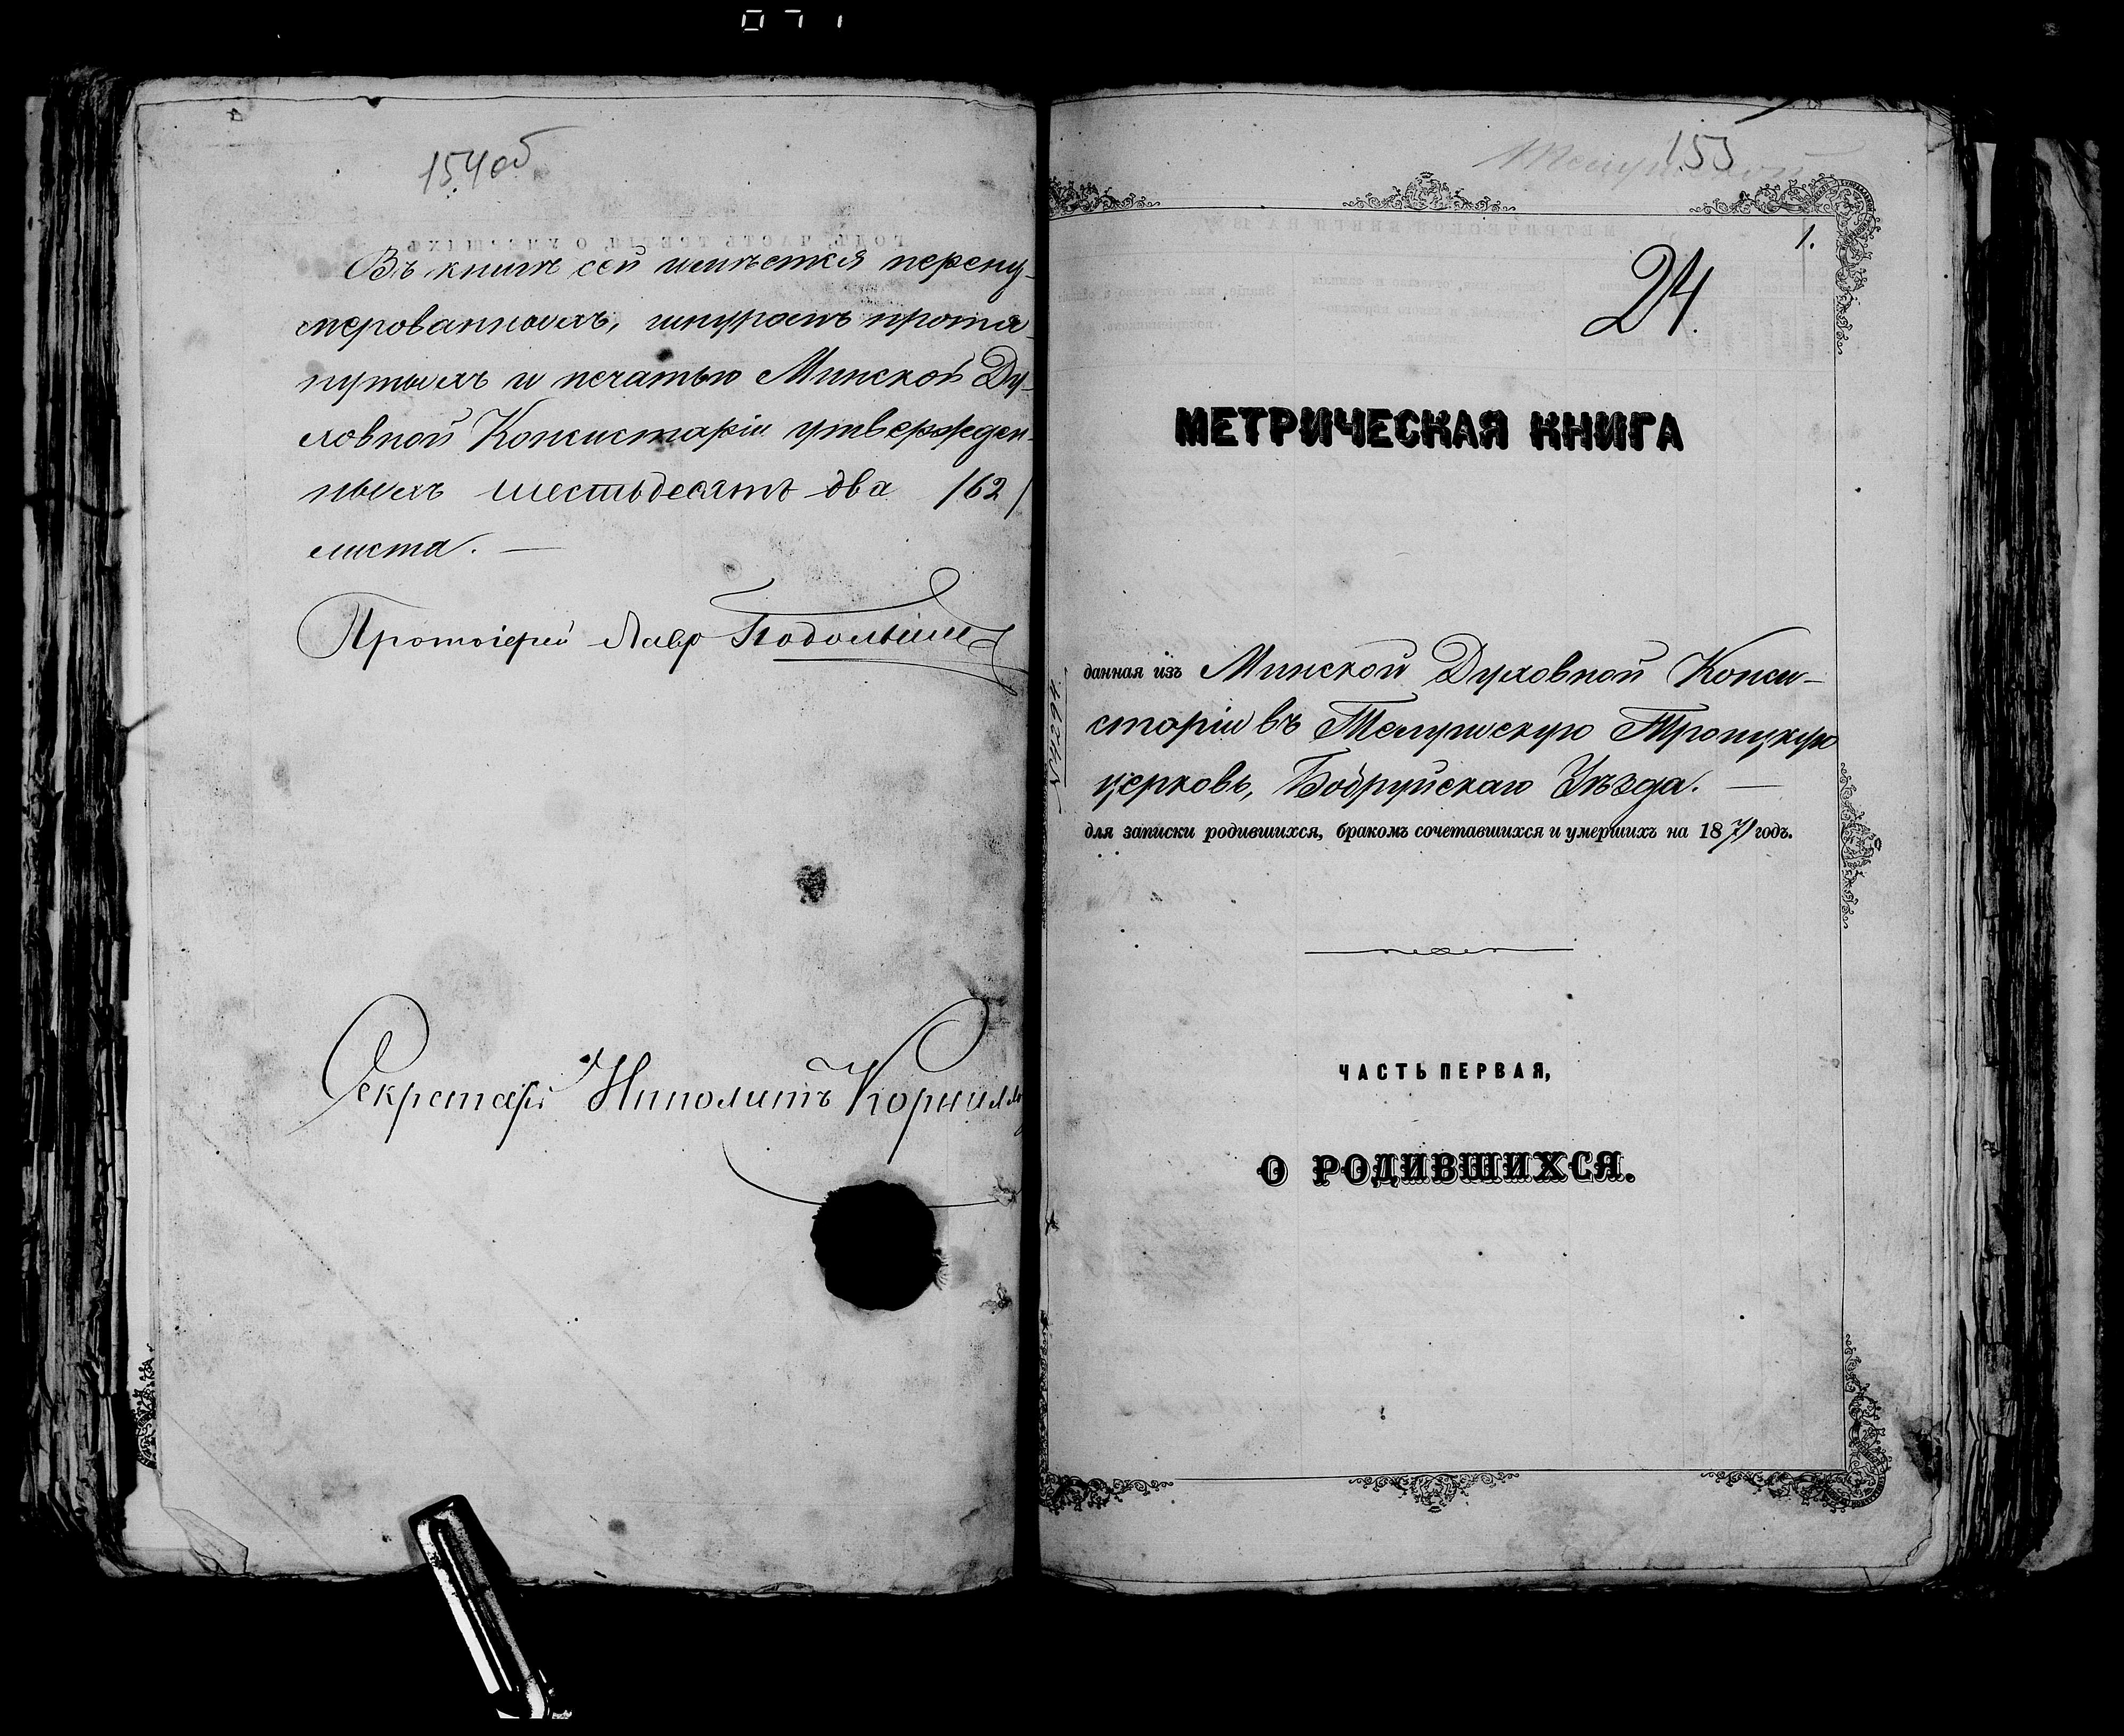 154 об
Въ книгѣ сей имѣется перену-
мерованныхъ, шнуромъ протя
нутыхъ и печатью Минской Ду-
ховной Консисторіи утвержден-
ныхъ шестьдесятъ два /62/
листа. —
Протоіерей Лавр
Секретарь Ипполитъ
155
1.
24.
МЕТРИЧЕСКАЯ КНИГА
данная изъ Минской Духовной Конси-
сторіи въ Телушскую Троицкую
церковь, Бобруйскаго Уѣзда. —
для записки родившихся, бракомъ сочетавшихся и умершихъ на 1871 годъ.
ЧАСТЬ ПЕРВАЯ,
О РОДИВШИХСЯ.